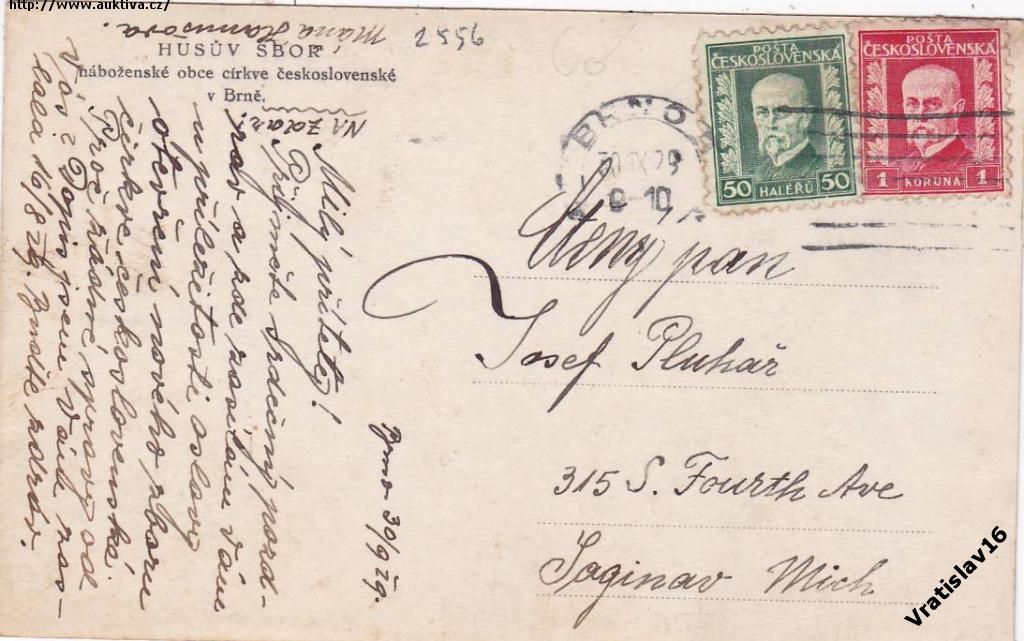 http://www.auktiva.cz/
2556
HUSŮV SBOR
náboženské obce církve československé
v Brně.
Na zdar!
Milý příteli!
Přijměte srdečný pozd-
rav a zde zasílám vám
u příležitosti oslavy
otevření nového sboru
církve československé.
Proč žádné zprávy od
Vás? Dopis jsem Vám zas-
lala 16/8 29. Buďte zdráv.
Brno 30/9 29.
POŠTA
ČESKOSLOVENSKÁ
50 HALÉŘŮ 50
POŠTA
ČESKOSLOVENSKÁ
1 KORUNA 1
BRNO
30 IX 29
9-10
Ctěný pan
Josef Pluhař
315 S. Fourth Ave
Saginav Mich
Vratislav16